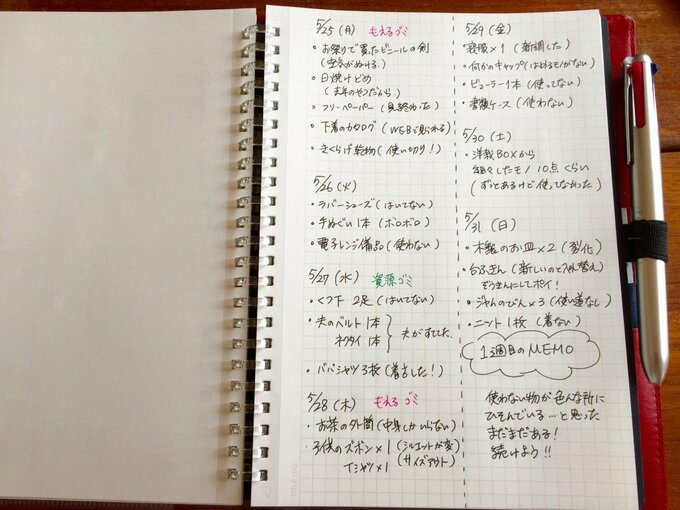 5/25 (月) もえるゴミ
・お祭りで買ったビニールの剣
(空気がぬける)
・日焼けどめ
(去年のやつだから)
・フリーペーパー (見終わった)
・下着のカタログ (WEBで見られる)
・きくらげ乾物 (使い切り!)
5/26 (火)
・ラバーシューズ (はいてない)
・手ぬぐい 1本 (ボロボロ)
・電子レンジ備品 (使わない)
5/27 (水) 資源ゴミ
・くつ下 2足 (はいてない)
・夫のベルト 1本
ネクタイ 1本
夫がすてた
・ババシャツ3枚 (着古した!)
5/28 (木) もえる ゴミ
・お茶の外筒 (中身しかいらない)
・子供のズボン×1 (シルエットが変)
Tシャツ×1 (サイズアウト)
5/29 (金)
・×1 (新調した)
・何かのキャップ (はめるモノがない)
・ビューラー1本 (使ってない)
・書類ケース (使わない)
5/30 (土)
・洋裁BOXから
細々したモノ 10点くらい
(ずっとあるけど使ってなかった)
5/31 (日)
・木製のお皿×2 (劣化)
・台ふきん (新しいのと入れ替え)
ぞうきんにしてポイ!
・ジャムのびん×3 (使い道なし)
・ニット 1枚 (着ない)
1週目のMEMO
使わない物が色んな所に
ひそんでいる…と思った
まだまだある!
続けよう!!